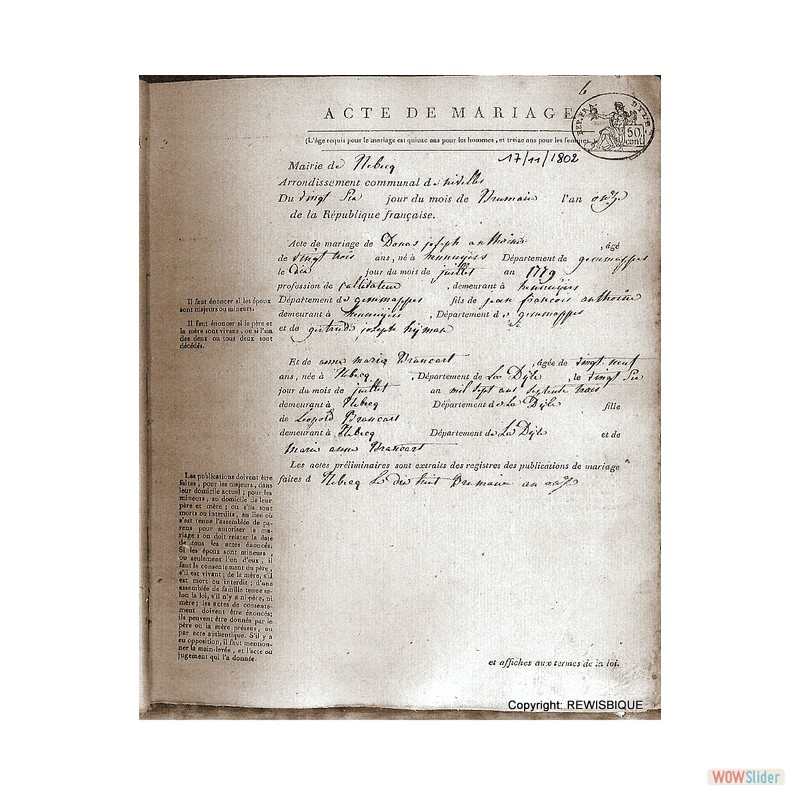 6
ACTE DE MARIAGE
REP. FRA. DYLE
50 cent
(L'âge requis pour le mariage est quinze ans pour les hommes, et treize ans pour les femmes.)
17/11/1802
Mairie de Rebecq
Arrondissement communal de nivelles
Du vingt six jour du mois de Brumaire l'an onze
de la République française.
Acte de mariage de Donas joseph anthoine , âgé
de vingt trois ans, né à hennuijers Département de gemmappes
le dix jour du mois de juillet an 1779
profession de cultivateur , demeurant à hennuijers
Département de gemmappes fils de jean francois anthoine
demeurant à hennuijers , Département de gemmappes
et de gertrude joseph hijman
Il faut énoncer si les époux
sont majeurs ou mineurs.
Il faut énoncer si le père et
la mère sont vivans, ou si l'un
des deux ou tous deux sont
décédés.
Et de anne marie Brancart , âgée de vingt neuf
ans, née à Rebecq , Département de La Dyle , le vingt six
jour du mois de juillet an mil sept cent septante trois
demeurant à Rebecq Département de La Dyle fille
de Leopold Brancart
demeurant à Rebecq Département de La Dyle et de
Marie anne Brancart
Les actes préliminaires sont extraits des registres des publications de mariage
faites à Rebecq Le dix huit Brumaire an onze
Les publications doivent être
faites, pour les majeurs, dans
leur domicile actuel; pour les
mineurs, au domicile de leur
père et mère; ou s'ils sont
morts ou interdits, au lieu où
s'est tenue l'assemblée de parens
pour autoriser le mariage
: on doit relater la date
de tous les actes énoncés.
Si les époux sont mineurs,
ou seulement l'un d'eux, il
faut le consentement du père,
s'il est vivant; de la mère, s'il
est mort ou interdit; d'une
assemblée de famille tenue selon
la loi, s'il n'y a ni père, ni
mère; les actes de consentement
doivent être énoncés;
ils peuvent être donnés par le
père ou la mère présens, ou
par acte authentique. S'il y a
eu opposition, il faut mentionner
la main-levée, et l'acte ou
jugement qui l'a donnée.
et affiches aux termes de la loi.
Copyright: REWISBIQUE
WOWSlider